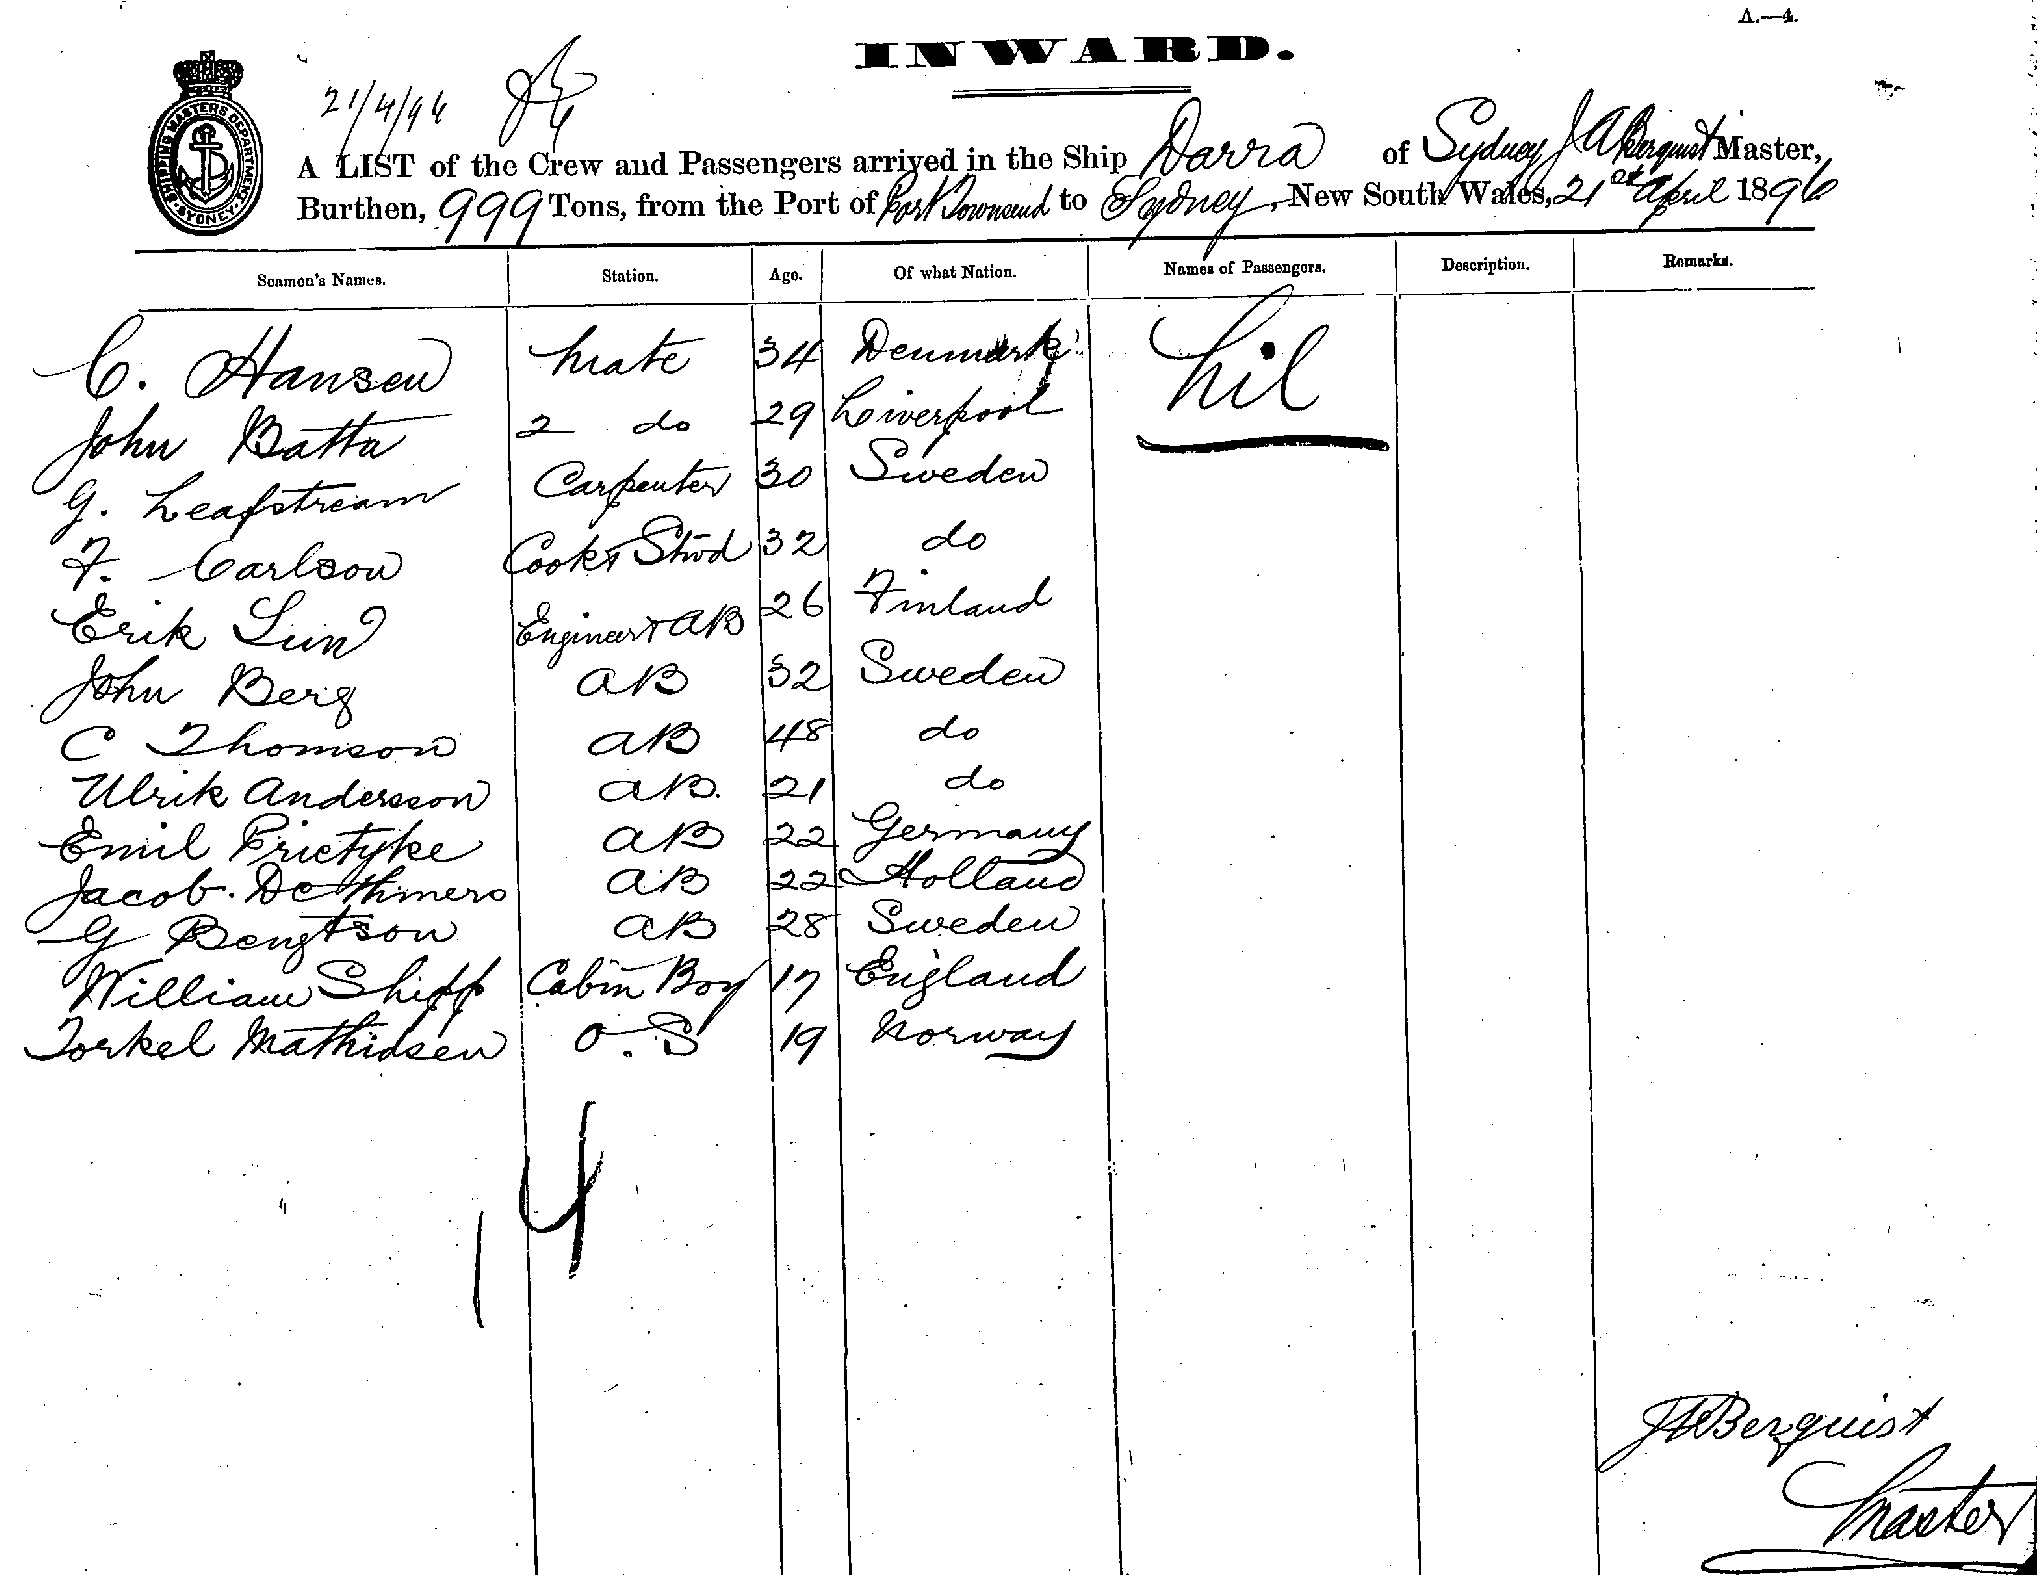 A.—4.
INWARD.
21/4/96
SHIPPING MASTERS DEPARTMENT SYDNEY
A LIST of the Crew and Passengers arrived in the Ship Darra of Sydney J A Berquist Master,
Burthen, 999 Tons, from the Port of Port Townsend to Sydney, New South Wales, 21st April 1896
Seamen's Names. Station. Age. Of what Nation. Names of Passengers. Description. Remarks.
C. Hansen Mate 34 Denmark Nil
John Batta 2 do 29 Liverpool
G. Leafstream Carpenter 30 Sweden
F. Carlson Cook & Stwd 32 do
Erik Lun Engineer & AB 26 Finland
John Berg AB 32 Sweden
C Thomson AB 48 do
Ulrik Andersson AB. 21 do
Emil Prietyke AB 22 Germany
Jacob. De Thmers AB 22 Holland
G Bengtson AB 28 Sweden
William Shipp Cabin Boy 17 England
Torkel Mathiasen O.S 19 Norway
14
J A Berquist
Master